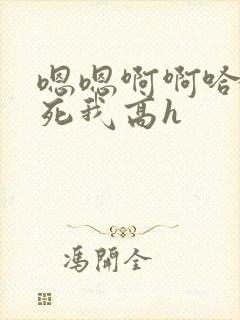 嗯嗯啊啊哈
死我高h
馮開全